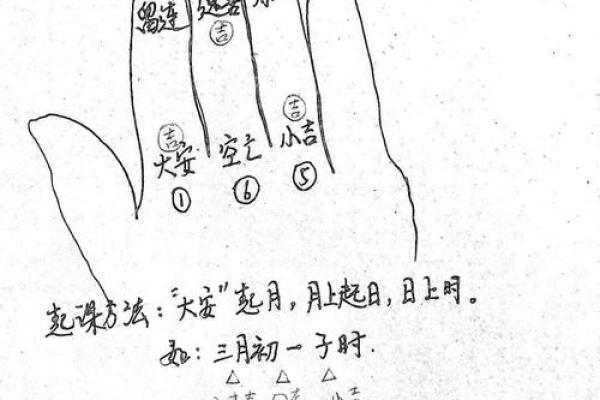 留连 速喜
吉
吉 吉
大安 空亡 小吉
① ⑥ ⑤
起课方法："大安"起月，月上起日，日上时。
如：三月初一子时.